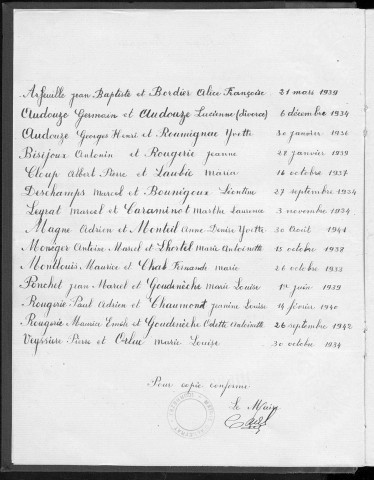 Arfeuille Jean Baptiste et Bordier Alice Françoise 21 mars 1939
Audouze Germain et Audouze Lucienne (divorce) 6 décembre 1934
Audouze Georges Henri et Roumignac Yvette 30 janvier 1936
Bisijoux Antonin et Rougerie Jeanne 28 janvier 1939
Cloup Albert Pierre et Laubie Maria 14 octobre 1937
Deschamps Marcel et Bounigoux Léontine 27 septembre 1934
Legrat Marcel et Caraminot Marthe Laurence 3 novembre 1934
Magne Adrien et Monteil Anne Denise Yvette 30 Août 1941
Monéger Antoine Marcel et Lhortel Marie Antoinette 15 octobre 1932
Montlouis Maurice et Chab Fernande Marie 21 octobre 1933
Ponchet Jean Marcel et Goudenèche Marie Louise 1er juin 1939
Rougerie Paul Adrien et Chaumont Jeanine Louise 14 février 1940
Rougerie Maurice Emile et Goudenèche Odette Antoinette 26 septembre 1942
Veyssière Pierre et Orluc Marie Louise 30 octobre 1934
Pour copie conforme
Le Maire